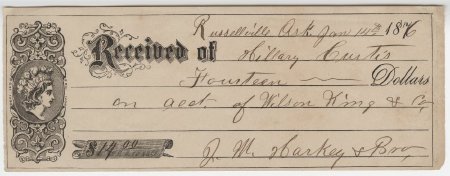 Russellville, Ark. Jan 14th 1876
Received of Hillary Curtis
Fourteen Dollars
on acct. of Wilson King & Co,
$14.00
J. M. Harkey & Bro,